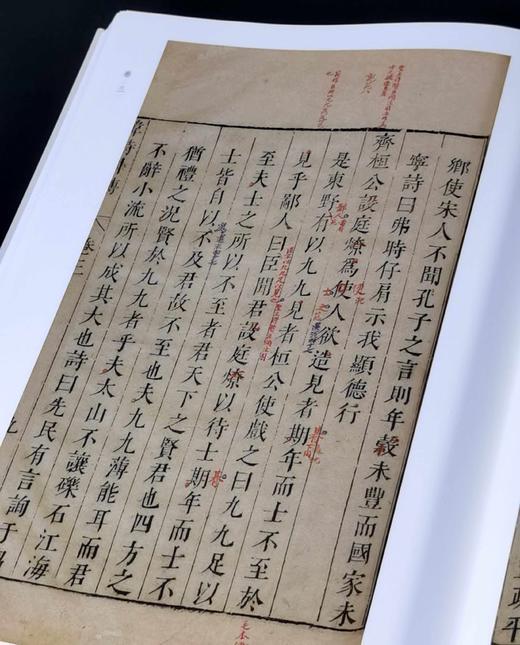 卷三
鄉使宋人不聞孔子之言則年穀未豐而國家未
寧詩曰弗時仔肩示我顯德行
齊桓公設庭燎爲使人欲造見者期年而士不至於
是東野有以九九見者桓公使戲之曰九九足以
見乎鄙人曰臣聞君設庭燎以待士期年而士不
至夫士之所以不至者君天下之賢君也四方之
士皆自以不及君故不至也夫九九薄能耳而君
猶禮之況賢於九九者乎夫太山不讓礫石江海
不辭小流所以成其大也詩曰先民有言詢于
卷三